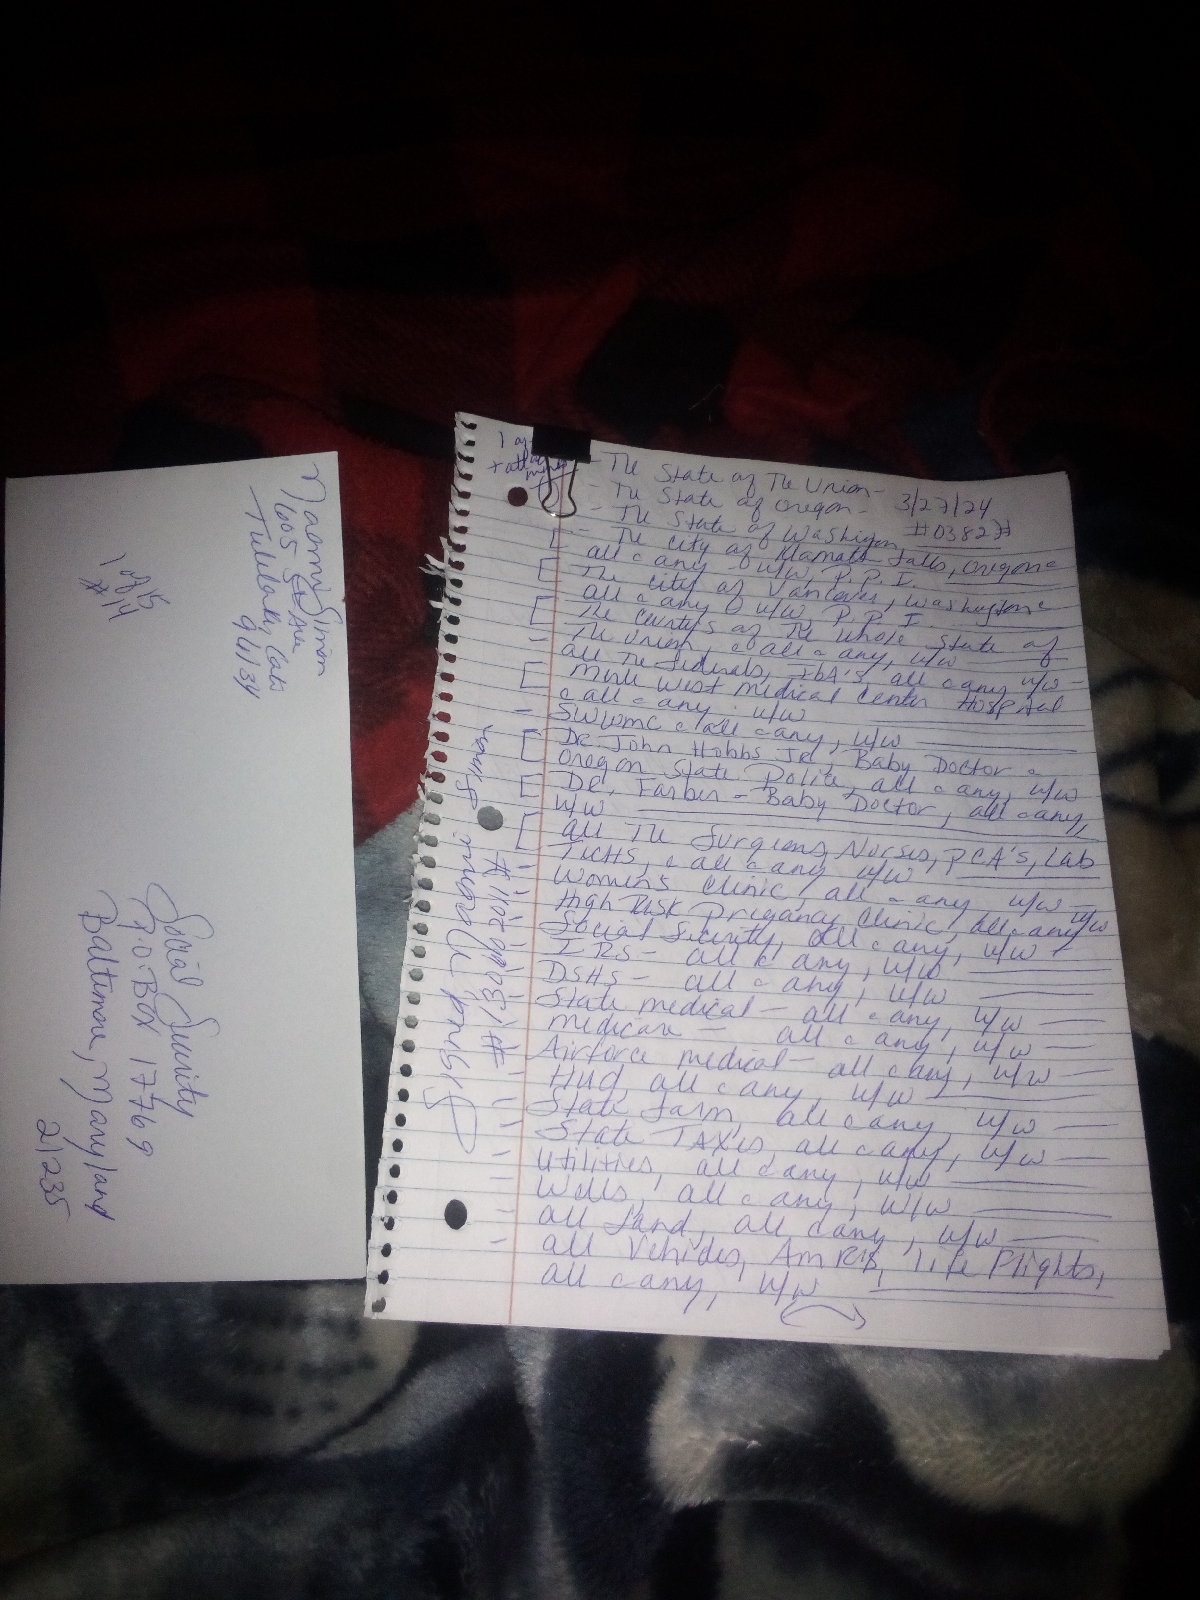 Naomi Simon
1605
Tulelake, Cali
96134
1 of 15
#14
Social Security
P.O. Box 17769
Baltimore, Maryland
21235
1 of
- The State of The Union -
3/27/24
- The State of Oregon -
- The State of Washigon
- The city of Klamath Falls, Oregon -
all c any - w/w, P.P.I.
The city of Vancover, Washington -
all c any w/w P.P.I.
The countys of The whole State of
The Union, c all c any, w/w
all The federals, all c any w/w -
Merle West Medical Center Hospital
c all c any w/w
- SWWMC c all c any, w/w
Dr. John Hobbs Jr, Baby Doctor -
Oregon State Polite, all c any, w/w
Dr. Farber - Baby Doctor, all c any,
w/w
all The Surgions, Nurses, PCA's, Lab
TicHS, c all c any w/w
Womens Clinic, all c any w/w -
High Risk Pregancy Clinic, all c any w/w
Social Security, all c any, w/w
IRS - all c any, w/w
DSHS - all c any, w/w
State medical - all c any, w/w
medicare - all c any, w/w
Airforce medical - all c any, w/w
Hud all c any, w/w
State Farm, all c any, w/w
State TAX's, all c any, w/w
- utilities, all c any, w/w
- Wells, all c any, w/w
- all Land, all c any, w/w
- all Vehicles, Life Flights,
all c any, w/w
Signed, Naomi Simon